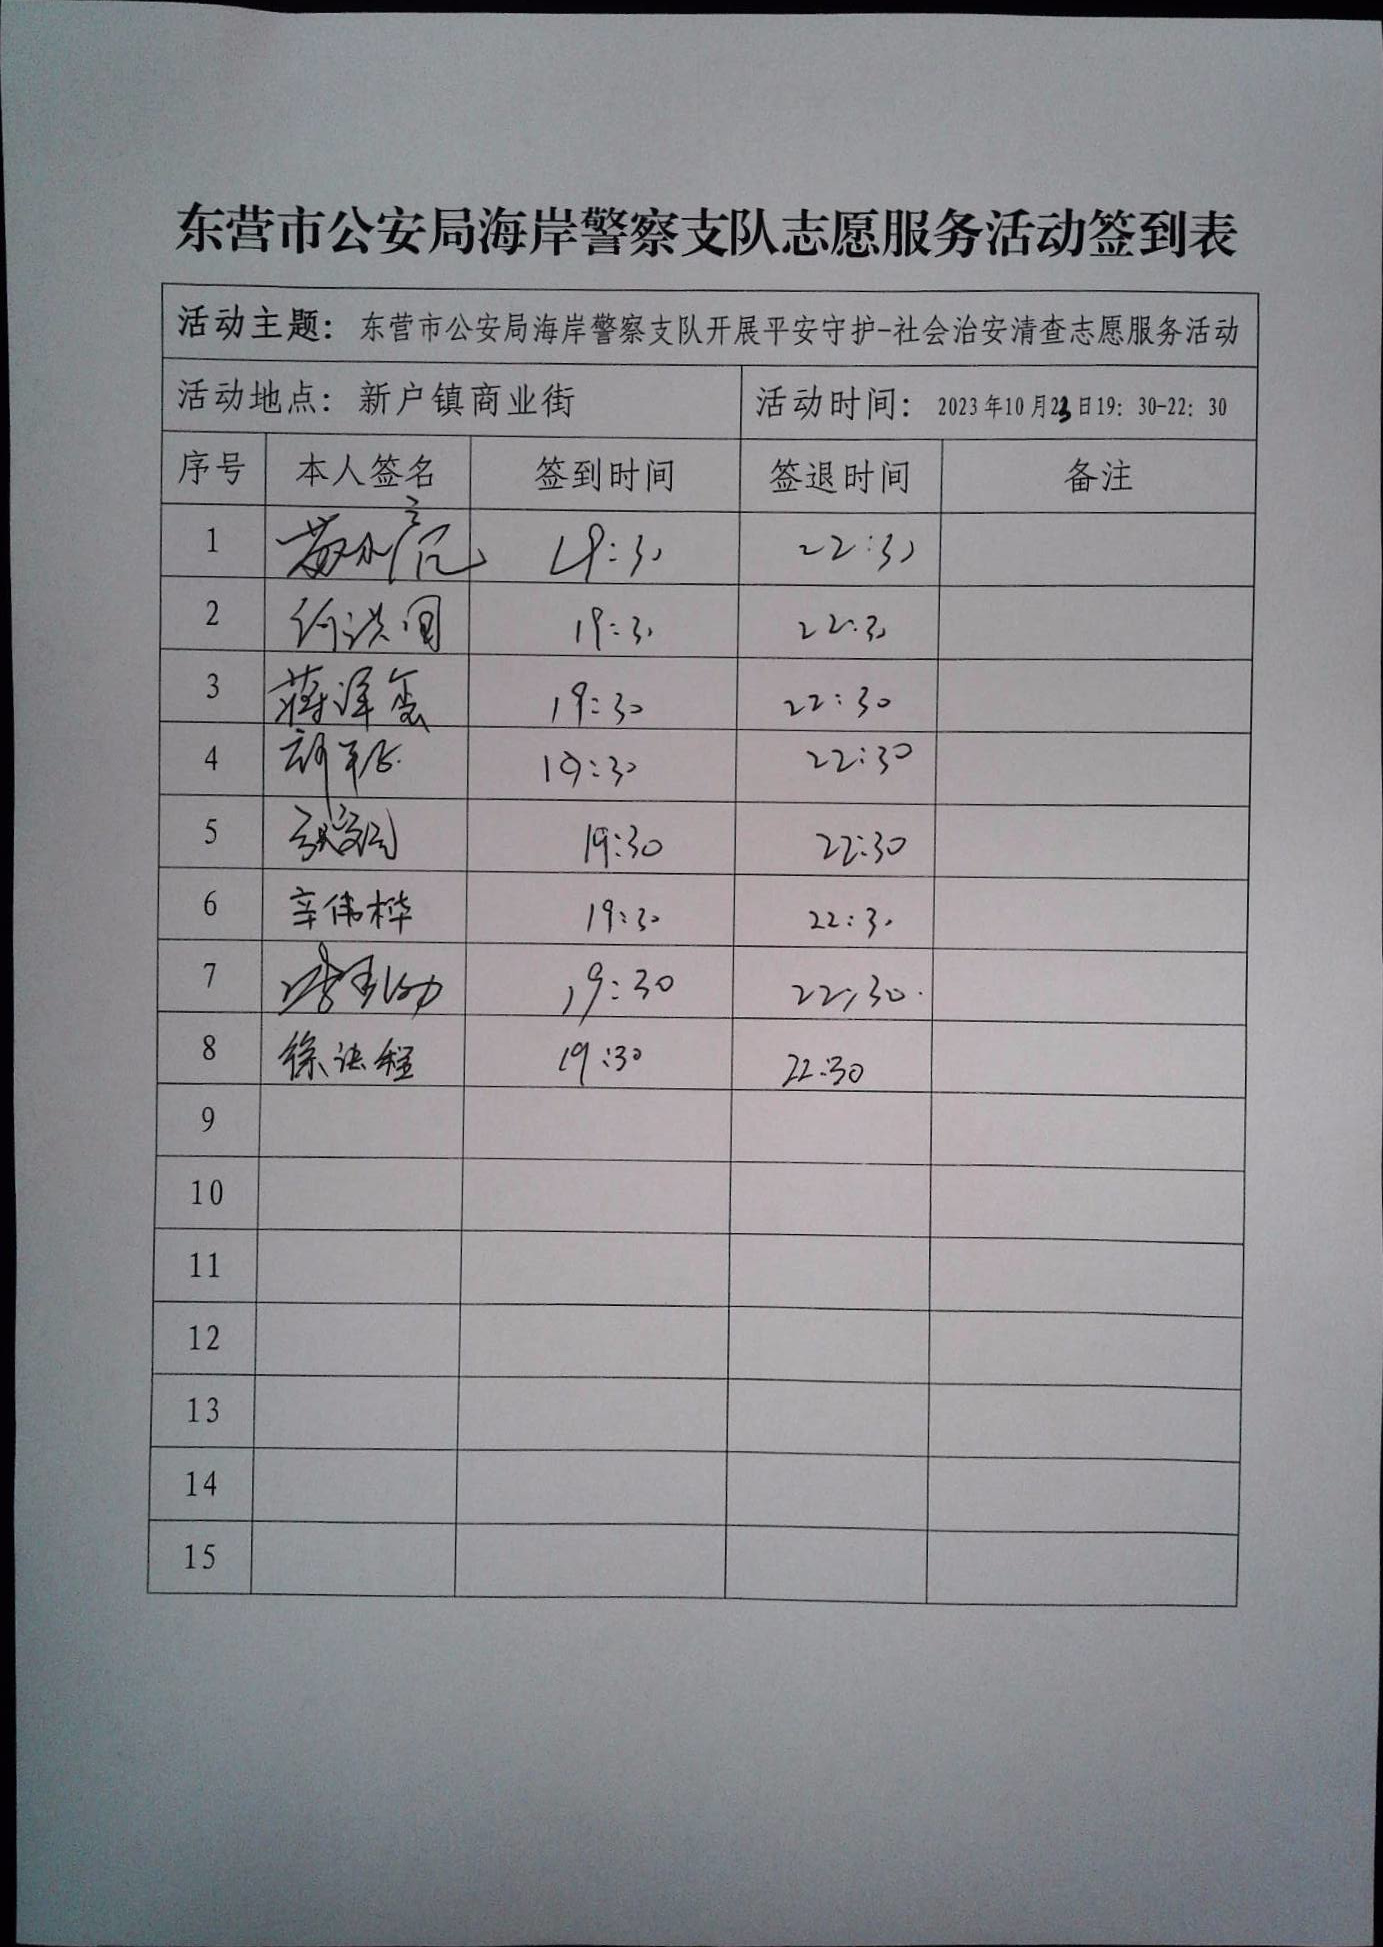 东营市公安局海岸警察支队志愿服务活动签到表
活动主题：东营市公安局海岸警察支队开展平安守护-社会治安清查志愿服务活动
活动地点：新户镇商业街 活动时间：2023年10月23日19：30-22：30
序号 本人签名 签到时间 签退时间 备注
1 19:30 22:30
2 19:30 22:30
3 蒋泽玺 19:30 22:30
4 19:30 22:30
5 19:30 22:30
6 辛伟桦 19:30 22:30
7 19:30 22:30
8 徐法程 19:30 22:30
9
10
11
12
13
14
15